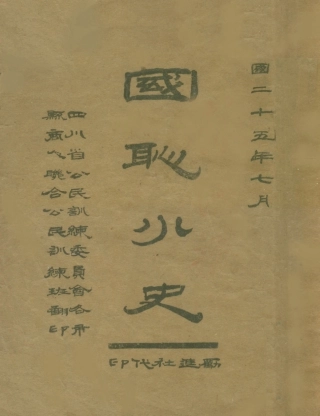 國二十五年七月
國恥小史
四川省公民訓練委員會合川
縣商人聯合公民訓練班翻印
勵進社代印